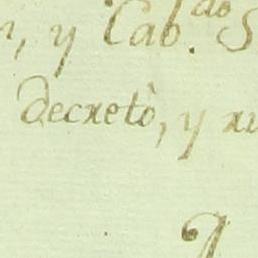 , y Cab.do S
decretò, y